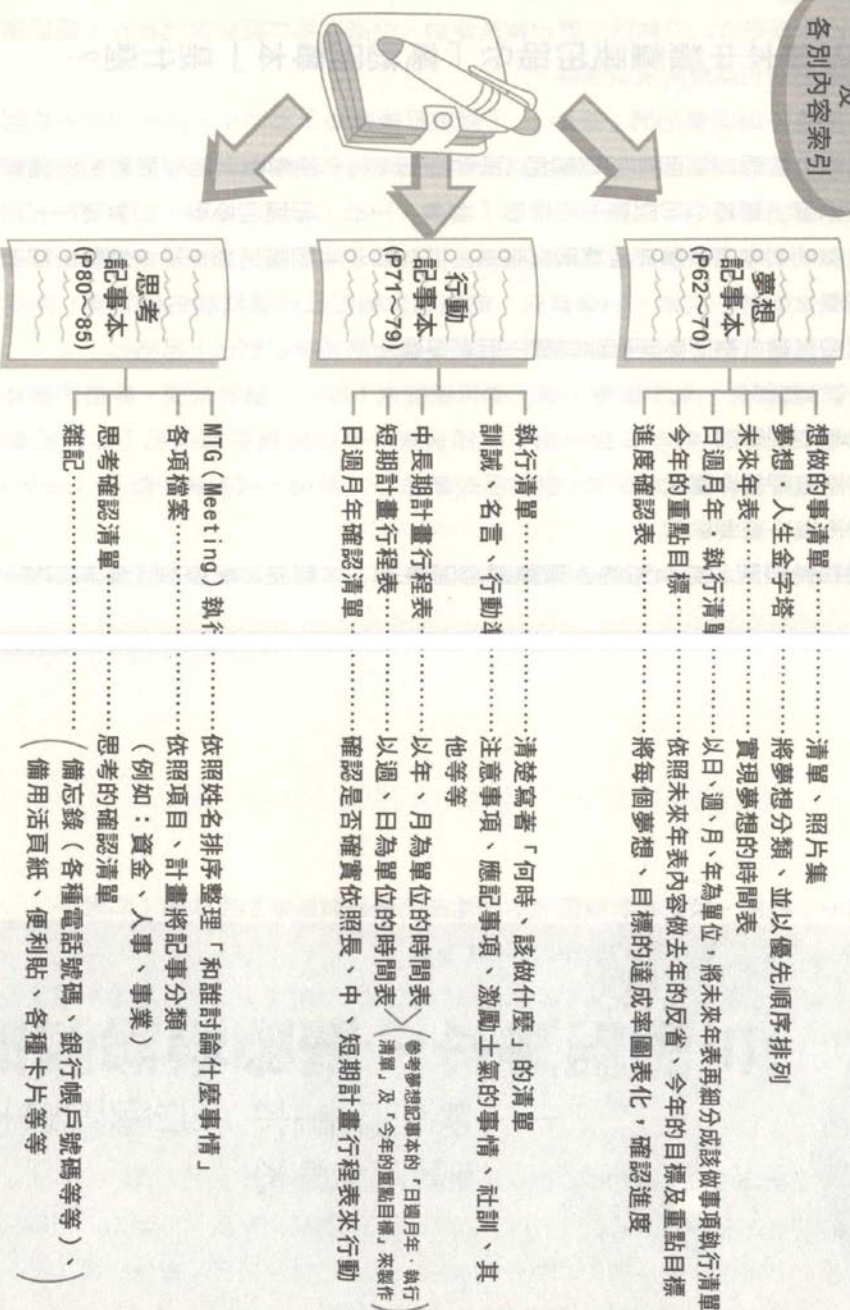 及
各別內容索引
夢想
記事本
(P62~70)
想做的事清單……………清單、照片集
夢想、人生金字塔……將夢想分類、並以優先順序排列
未來年表……………實現夢想的時間表
日週月年・執行清單……以日、週、月、年為單位，將未來年表再細分成該做事項執行清單
今年的重點目標……………依照未來年表內容做去年的反省、今年的目標及重點目標
進度確認表……………將每個夢想、目標的達成率圖表化，確認進度
行動
記事本
(P71~79)
執行清單……………清楚寫著「何時、該做什麼」的清單
訓誡、名言、行動準……注意事項、應記事項、激勵士氣的事情、社訓、其
他等等
中長期計畫行程表……以年、月為單位的時間表
短期計畫行程表……以週、日為單位的時間表
(參考夢想記事本的「日週月年・執行
清單」及「今年的重點目標」來製作)
日週月年確認清單……確認是否確實依照長、中、短期計畫行程表來行動
思考
記事本
(P80~85)
MTG(Meeting)執行……依照姓名排序整理「和誰討論什麼事情」
各項檔案……………依照項目、計畫將記事分類
(例如：資金、人事、事業)
思考確認清單……………思考的確認清單
雜記……………(備忘錄(各種電話號碼、銀行帳戶號碼等等)、
備用活頁紙、便利貼、各種卡片等等)